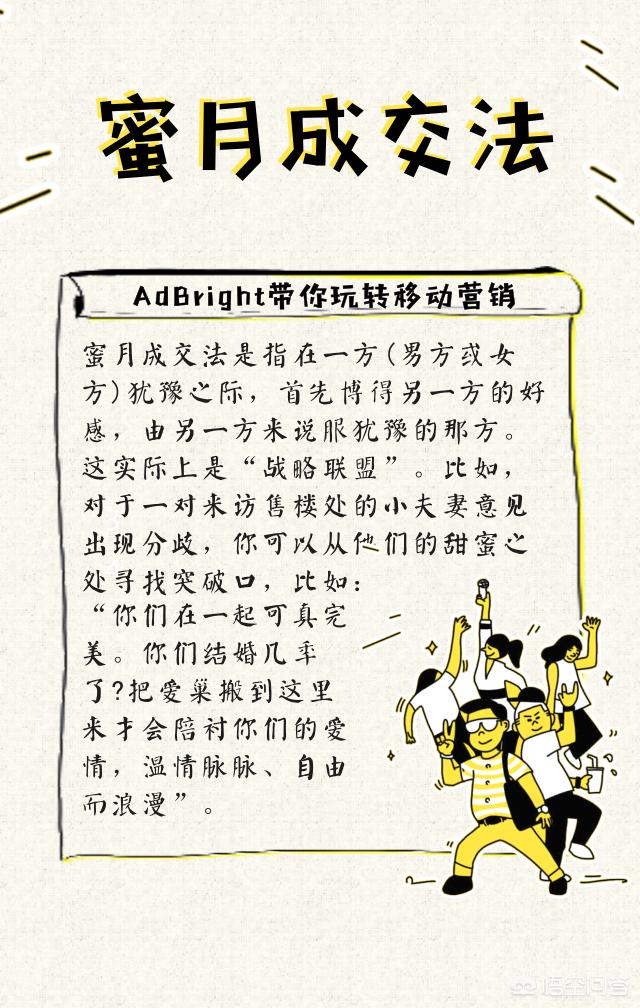 蜜月成交法
AdBright带你玩转移动营销
蜜月成交法是指在一方(男方或女
方)犹豫之际，首先博得另一方的好
感，由另一方来说服犹豫的那方。
这实际上是“战略联盟”。比如，
对于一对来访售楼处的小夫妻意见
出现分歧，你可以从他们的甜蜜之
处寻找突破口，比如：
“你们在一起可真完
美。你们结婚几年
了?把爱巢搬到这里
来才会陪衬你们的爱
情，温情脉脉、自由
而浪漫”。
悟空问答